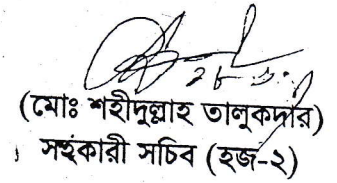 (মোঃ শহীদুল্লাহ তালুকদার)
সহকারী সচিব (হজ-২)